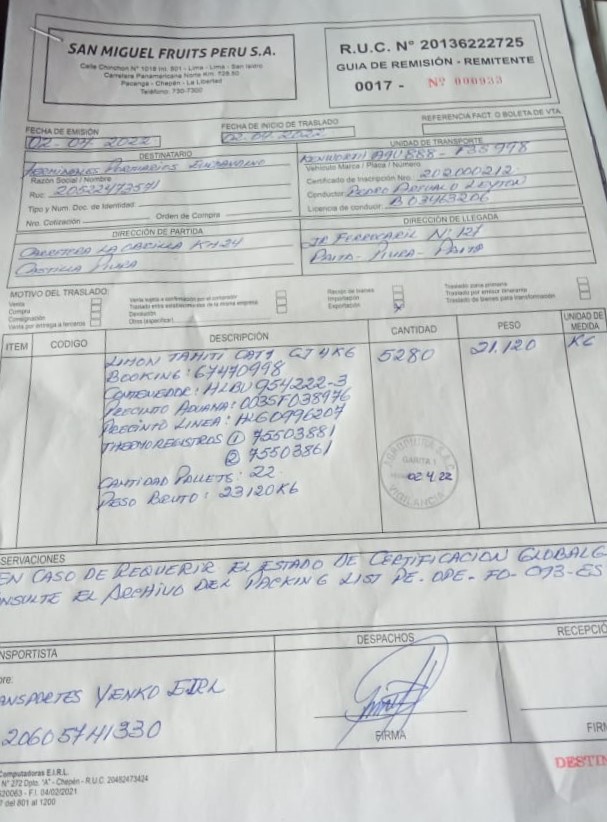 SAN MIGUEL FRUITS PERU S.A.
Calle Chinchon N° 1018 Int. 801 - Lima - Lima - San Isidro
Carretera Panamericana Norte Km. 728.50
Pacanga - Chepén - La Libertad
Teléfono: 730-7300
R.U.C. N° 20136222725
GUIA DE REMISIÓN - REMITENTE
0017 - Nº 000933
FECHA DE EMISIÓN
02-04-2022
FECHA DE INICIO DE TRASLADO
02-04-2022
REFERENCIA FACT. O BOLETA DE VTA.
DESTINATARIO
TERMINALES PORTUARIOS EUROANDINO
Razón Social / Nombre
Ruc: 20522473571
Tipo y Num. Doc. de Identidad:
Nro. Cotización: Orden de Compra
UNIDAD DE TRANSPORTE
KENWORTH A9U888 - F35998
Vehículo Marca / Placa / Número
Certificado de Inscripción Nro. 202000212
Conductor: PEDRO AREVALO LEYTON
Licencia de conducir: B03463206
DIRECCIÓN DE PARTIDA
CARRETERA LA OBRILLA KM24
CASTILLA PIURA
DIRECCIÓN DE LLEGADA
JR FERROCARIL N° 127
PAITA - PIURA - PAITA
MOTIVO DEL TRASLADO:
Venta
Compra
Consignación
Venta por entrega a terceros
Venta sujeta a confirmación por el comprador
Traslado entre establecimientos de la misma empresa
Devolución
Otros (especificar)
Recojo de bienes
Importación
Exportación X
Traslado zona primaria
Traslado por emisor itinerante
Traslado de bienes para transformación
ITEM CODIGO DESCRIPCIÓN CANTIDAD PESO UNIDAD DE MEDIDA
LIMON TAHITI CAT1 CJ4KG 5280 21.120 KG
BOOKING: 67470998
CONTENEDOR: HLBU954222-3
PRECINTO ADUANA: 0035FD38976
PRECINTO LINEA: HLGD996207
THERMOREGISTROS ① 75503881
② 75503861
CANTIDAD PALLETS: 22
PESO BRUTO: 23120KG
GARITA 1
02.4.22
VIGILANCIA
SERVACIONES
EN CASO DE REQUERIR EL ESTADO DE CERTIFICACION GLOBALG
NSULTE EL ARCHIVO DEL PACKING LIST PE-OPE-FO-073-ES
NSPORTISTA
DESPACHOS
RECEPCIÓ
bre:
ANSPORTES YENKO EIRL
20605741330
FIRMA
FIRM
DESTIN
Computadoras E.I.R.L.
N° 272 Dpto. "A" - Chepén - R.U.C. 20482473424
620063 - F.I. 04/02/2021
7 del 801 al 1200